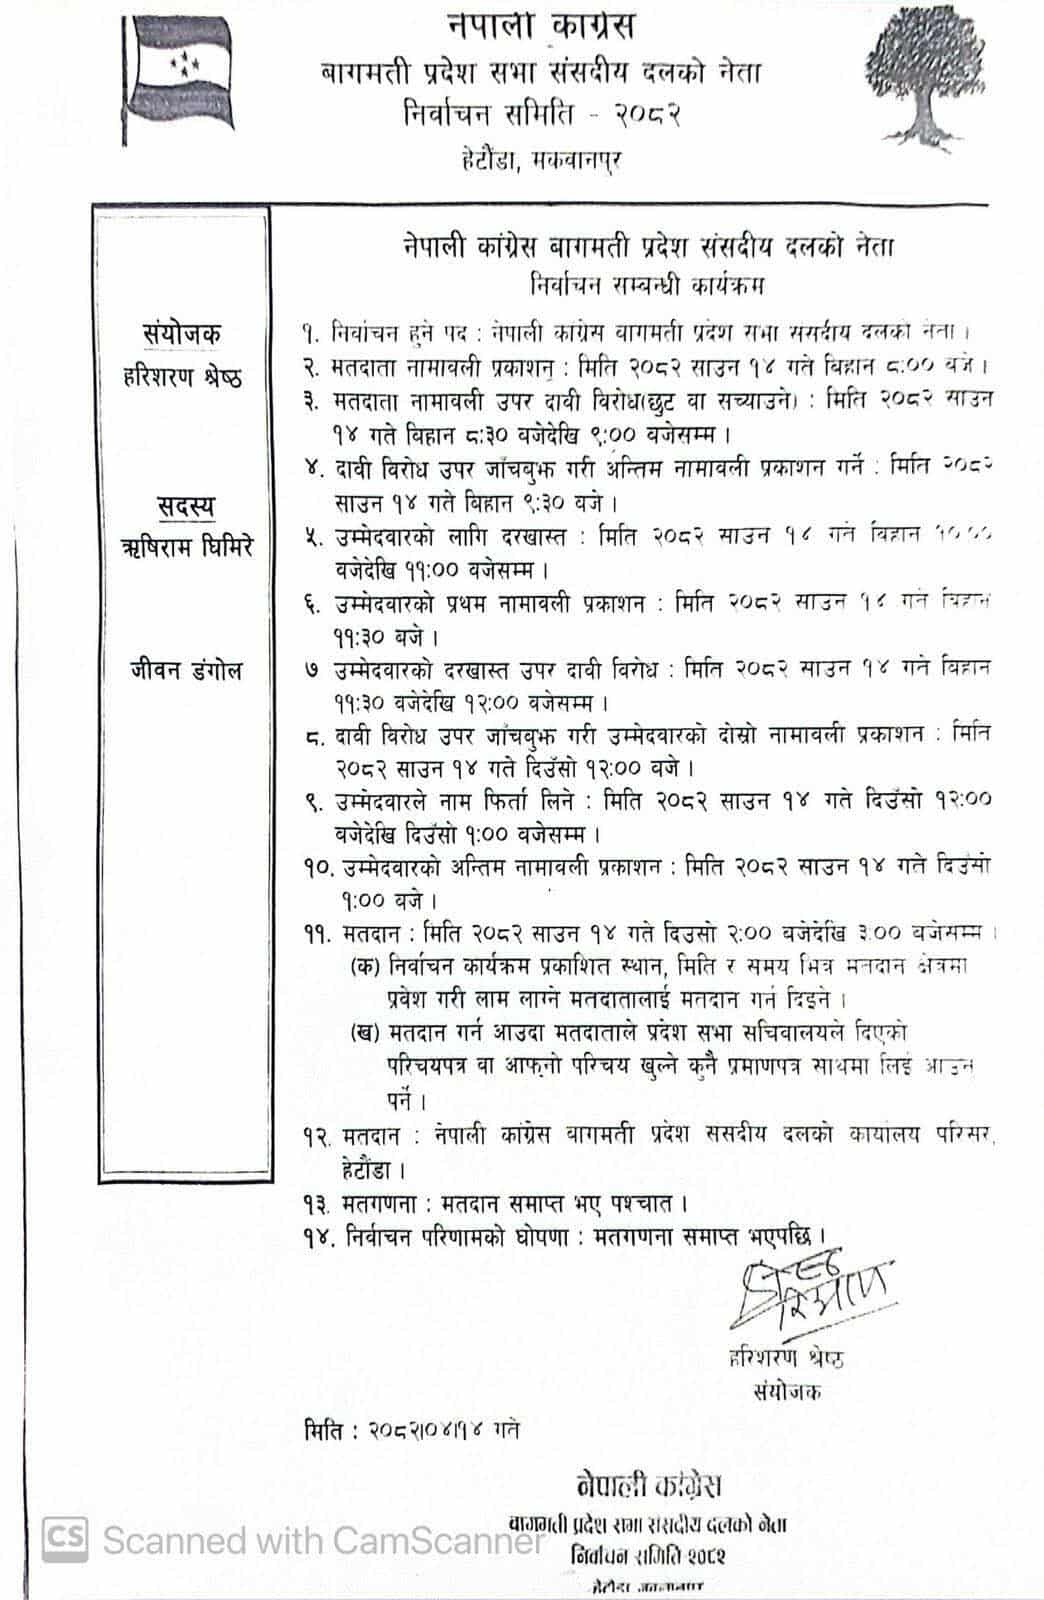 नेपाली कांग्रेस
बागमती प्रदेश सभा संसदीय दलको नेता
निर्वाचन समिति - २०८२
हेटौंडा, मकवानपुर
संयोजक
हरिशरण श्रेष्ठ
सदस्य
ऋषिराम घिमिरे
जीवन डंगोल
नेपाली कांग्रेस बागमती प्रदेश संसदीय दलको नेता
निर्वाचन सम्बन्धी कार्यक्रम
१. निर्वाचन हुने पद : नेपाली कांग्रेस बागमती प्रदेश सभा संसदीय दलको नेता ।
२. मतदाता नामावली प्रकाशन : मिति २०८२ साउन १४ गते बिहान ८:०० बजे ।
३. मतदाता नामावली उपर दावी विरोध(छुट वा सच्याउने) : मिति २०८२ साउन
१४ गते बिहान ८:३० बजेदेखि ९:०० बजेसम्म ।
४. दावी विरोध उपर जाँचबुझ गरी अन्तिम नामावली प्रकाशन गर्ने : मिति २०८२
साउन १४ गते बिहान ९:३० बजे ।
५. उम्मेदवारको लागि दरखास्त : मिति २०८२ साउन १४ गते बिहान १०:००
बजेदेखि ११:०० बजेसम्म ।
६. उम्मेदवारको प्रथम नामावली प्रकाशन : मिति २०८२ साउन १४ गते बिहान
११:३० बजे ।
७ उम्मेदवारको दरखास्त उपर दावी विरोध : मिति २०८२ साउन १४ गते बिहान
११:३० बजेदेखि १२:०० बजेसम्म ।
८. दावी विरोध उपर जाँचबुझ गरी उम्मेदवारको दोस्रो नामावली प्रकाशन : मिति
२०८२ साउन १४ गते दिउँसो १२:०० बजे ।
९. उम्मेदवारले नाम फिर्ता लिने : मिति २०८२ साउन १४ गते दिउँसो १२:००
बजेदेखि दिउँसो १:०० बजेसम्म ।
१०. उम्मेदवारको अन्तिम नामावली प्रकाशन : मिति २०८२ साउन १४ गते दिउँसो
१:०० बजे ।
११. मतदान : मिति २०८२ साउन १४ गते दिउसो २:०० बजेदेखि ३:०० बजेसम्म ।
(क) निर्वाचन कार्यक्रम प्रकाशित स्थान, मिति र समय भित्र मतदान क्षेत्रमा
प्रवेश गरी लाम लाग्ने मतदातालाई मतदान गर्न दिइने ।
(ख) मतदान गर्न आउदा मतदाताले प्रदेश सभा सचिवालयले दिएको
परिचयपत्र वा आफ्नो परिचय खुल्ने कुनै प्रमाणपत्र साथमा लिई आउनु
पर्ने ।
१२. मतदान : नेपाली कांग्रेस बागमती प्रदेश संसदीय दलको कार्यालय परिसर,
हेटौंडा ।
१३. मतगणना : मतदान समाप्त भए पश्चात ।
१४. निर्वाचन परिणामको घोषणा : मतगणना समाप्त भएपछि ।
हरिशरण श्रेष्ठ
संयोजक
मिति : २०८२।०४।१४ गते
नेपाली कांग्रेस
बागमती प्रदेश सभा संसदीय दलको नेता
निर्वाचन समिति २०८२
हेटौंडा मकवानपुर
CS Scanned with CamScanner